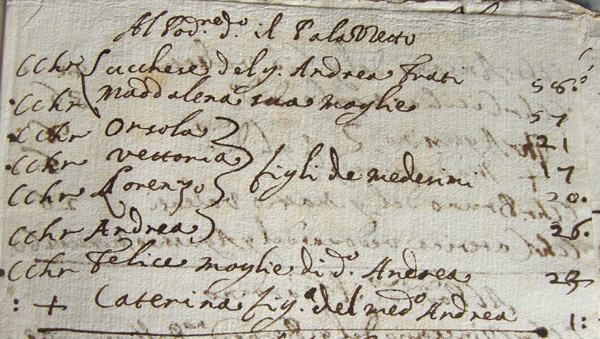 Al Pod.re d.o il Palazzetto
CChr Lucchese del q. Andrea Frati 58.
CChr Maddalena sua moglie 57
CChr Orsola 21
CChr Vettoria figli de medesimi 17
CChr Lorenzo 20.
CChr Andrea 26.
CChr Felice moglie di d.o Andrea 23
: + Caterina fig.a del med.o Andrea 1: